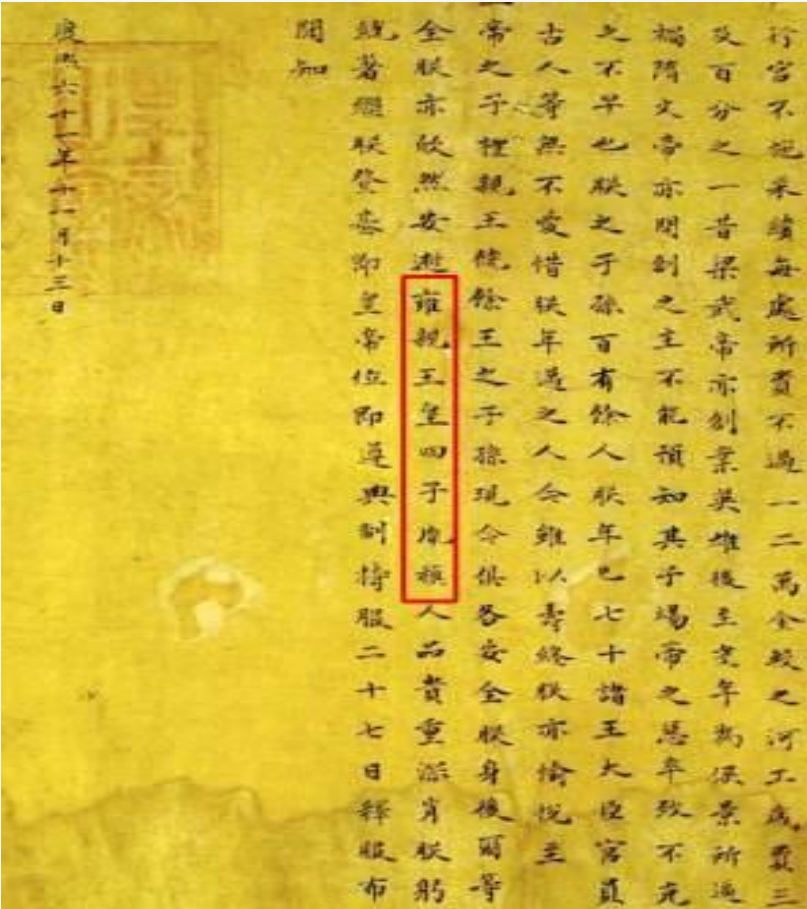 行宮不施采繢每處所費不過一二萬金較之河工歲費三
及百分之一昔梁武帝亦創業英雄後至耄年為侯景所逼
禍隋文帝亦開創之主不能預知其子煬帝之惡卒致不克
之不早也朕之子孫百有餘人朕年已七十諸王大臣官員
古人等無不愛惜朕年邁之人今雖以壽終朕亦愉悅至
帝之子禮親王饒餘王之子孫現今俱各安全朕身後爾等
全朕亦欣然安逝雍親王皇四子胤禛人品貴重深肖朕躬
統著繼朕登基即皇帝位即遵輿制持服二十七日釋服布
聞知
康熙六十一年十一月十三日